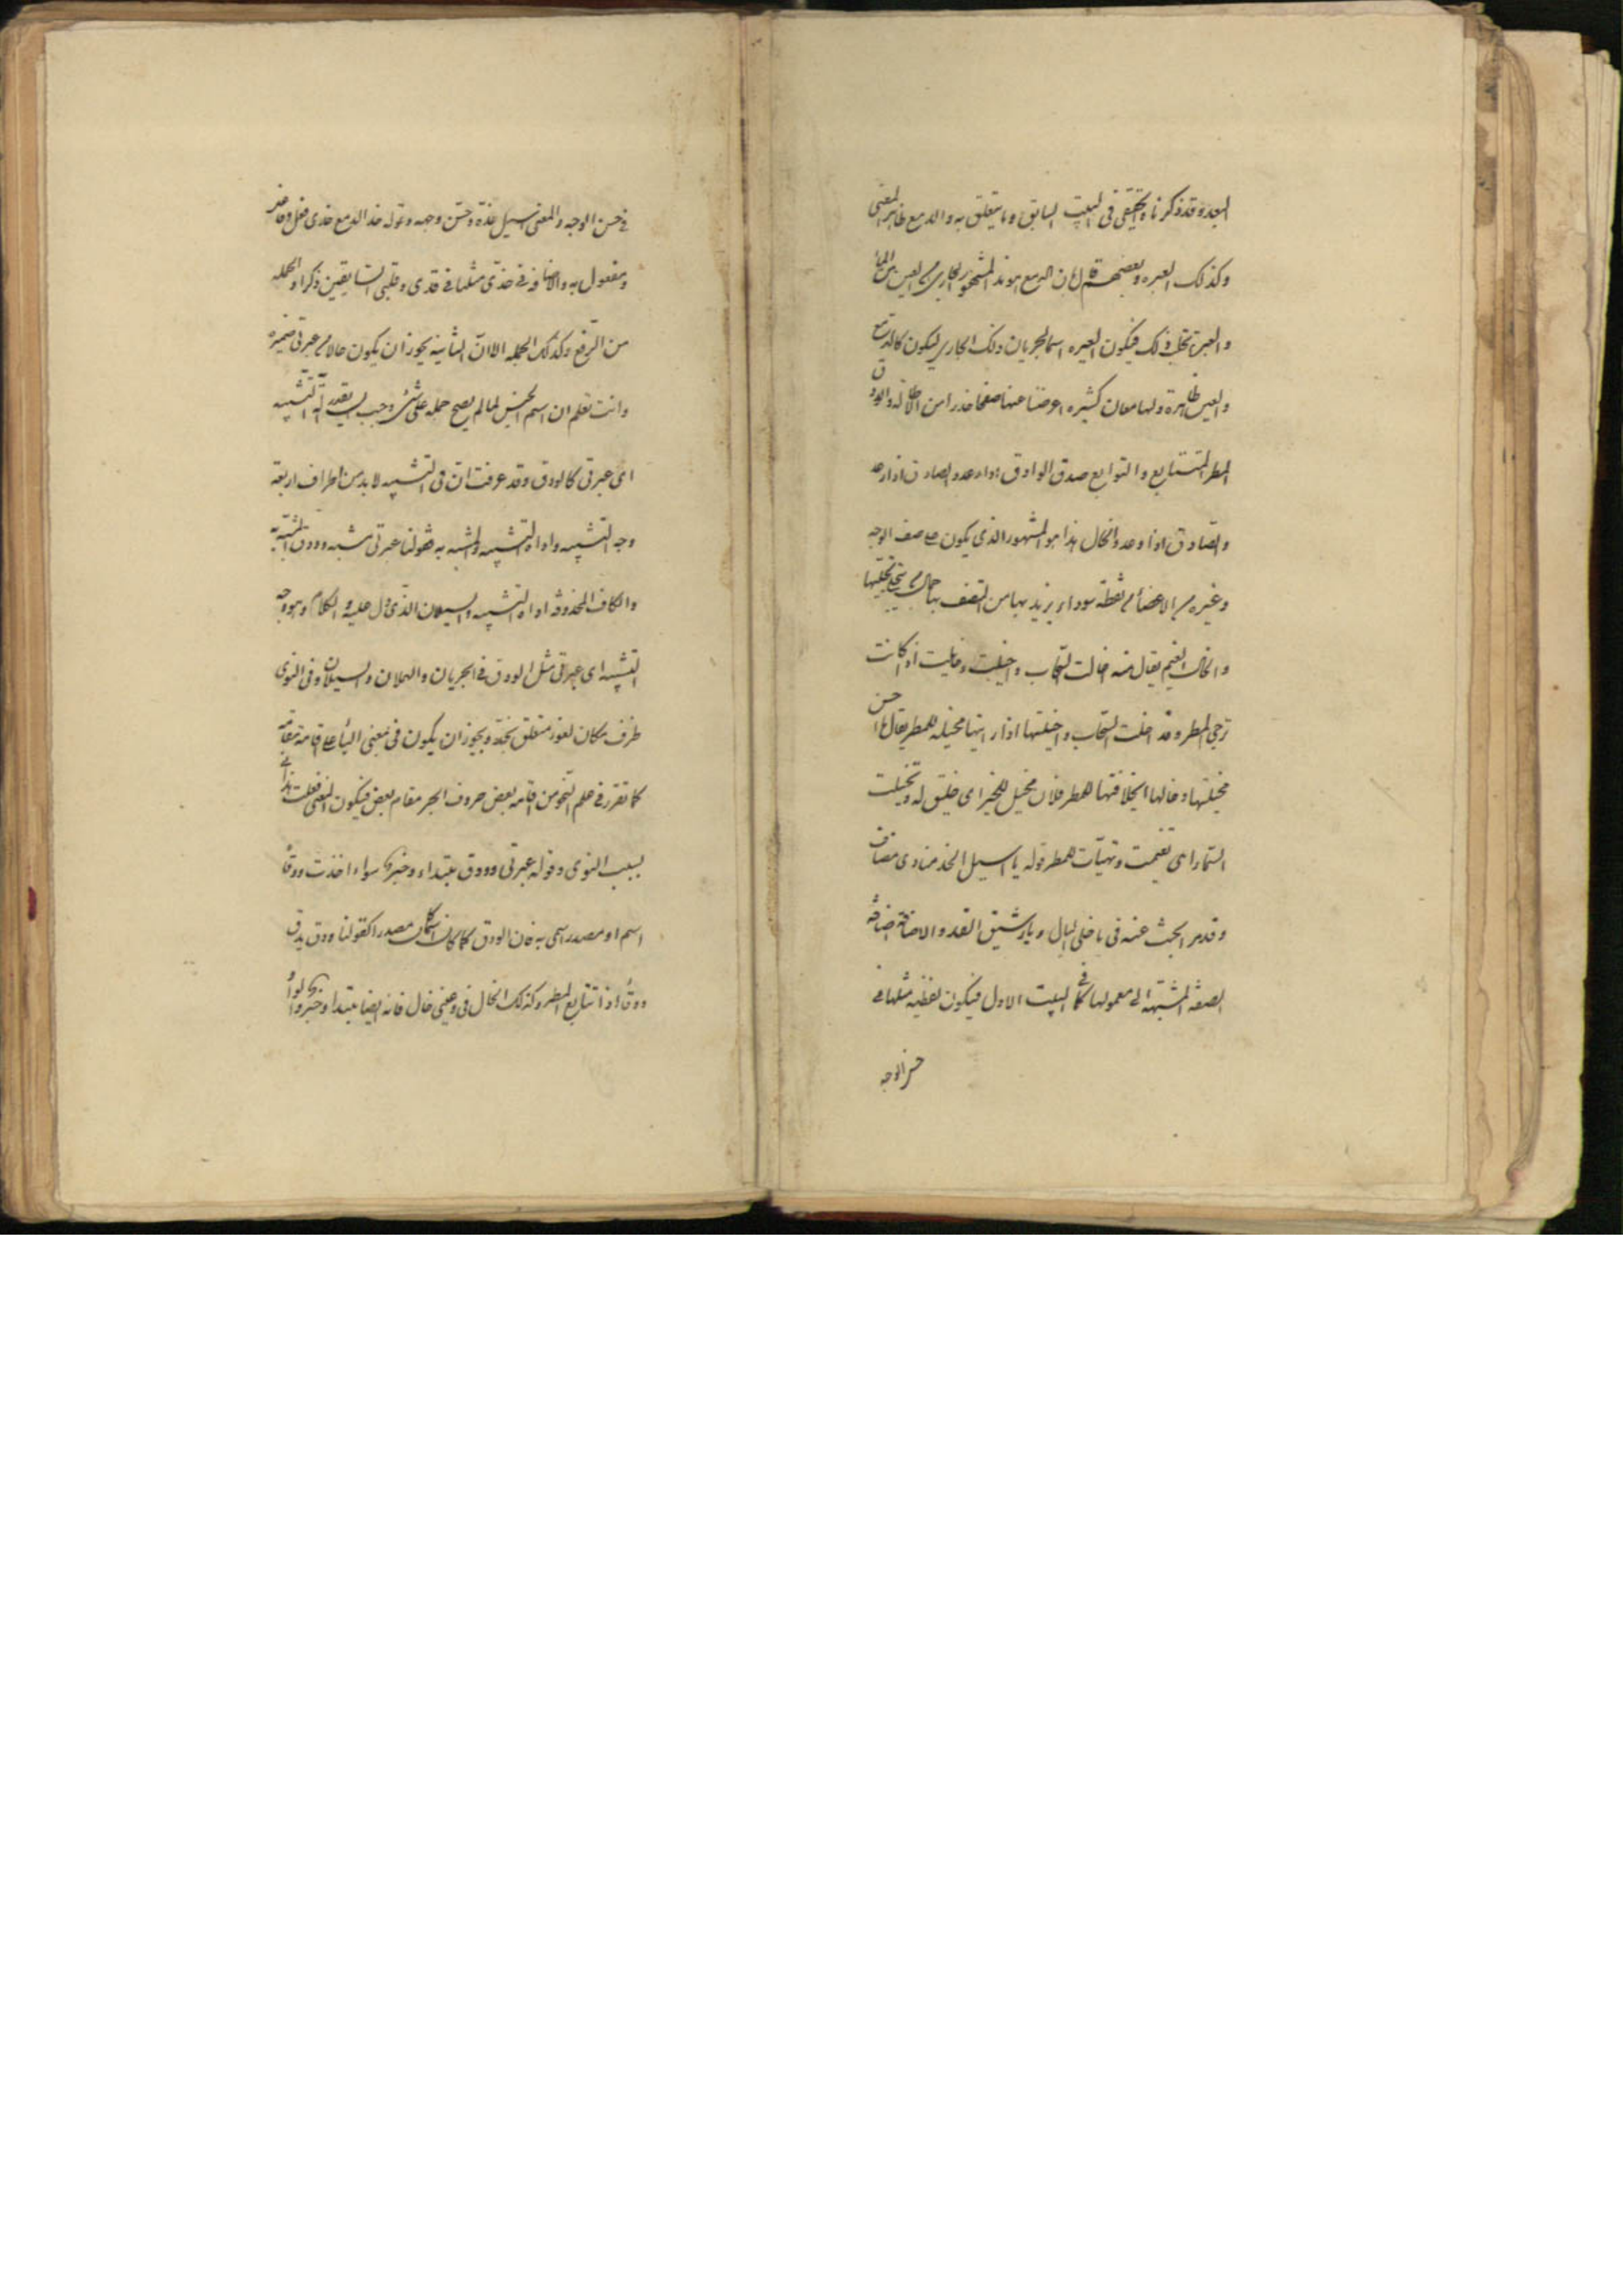 البعد وقد ذكرناه وتحقيقه فى البيت السابق وما يتعلق به والدمع ظاهر المعنى
وكذلك العبره وبعضهم قال ان الدمع هو هذا المشهور الجارى من العين
والعبرة تحلب ذلك فيكون العبره اسما لجريان ذلك الجارى ليكون كالدمع
والعين ظاهرة ولها معان كثيره اعرضنا عنها صفحا حذرا من الاطالة والودق
المطر المتتابع والتوابع صدق الوادق اذا رعد والصادق اذا رعد
والصادق اذا وعد والخال هذا هو المشهور الذى يكون على صفحه الوجه
وغيره من الاعضاء من نقطة سوداء يزيد بها من اتصف بها جمالا
والخال الغيم يقال منه خالت السحاب واخيلت وخايلت اذا كانت
ترجى المطر وقد اخلت السحاب واخيلتها اذا رايتها مخيلة للمطر يقال ما احسن
مخيلتها وخالها اى خلاقتها للمطر فلان مخيل للخير اى خليق له وتخيلت
السماء اى تغيمت وتهيأت للمطر قوله يا اسيل الخد منادى مضاف
وقد مر البحث عنه فى يا خلى البال ويا رشيق القد والاضافة اضافة
الصفة المشبهة الى معمولها كما فى البيت الاول فيكون لفظيه مثلها فى
حسن الوجه
فى حسن الوجه والمعنى اسيل خده وحسن وجهه وقوله خد الدمع خدى فعل وفاعل
ومفعول به والاضافة فى خدى مثلها فى قدى وقلبى السابقين ذكرا والجمله
من الرفع وكذلك الجملة الا ان الثانية يجوز ان يكون حالا من عبرتى ضميره
وانت تعلم ان اسم الجنس لما لم يصح حمله على شىء وجب تقدير آلة التشبيه
اى عبرتى كالودق وقد عرفت ان فى التشبيه لا بد من اطراف اربعة
وجه التشبيه واداة التشبيه والمشبه به فقولنا عبرتى مشبه وودق المشبه به
والكاف المحذوفة اداة التشبيه والسيلان الذى دل عليه الكلام وهو وجه
التشبيه اى عبرتى مثل الودق فى الجريان والهملان والسيلان وفى النوى
ظرف مكان لغو متعلق بخد ويجوز ان يكون فى بمعنى الباء على اقامة مقامه
كما تقرر فى علم النحو من اقامه بعض حروف الجر مقام بعض فيكون المعنى فعلت هذا
بسبب النوى وقوله عبرتى وودق مبتداء وخبرها سواء اخذت ودقا
اسم او مصدر اسمى به فان الودق كما كان اسما كان مصدرا كقولنا ودق يدق
ودقا اذا تتابع المطر وكذلك الخال فى وعينى خال فانه ايضا مبتداء وخبر